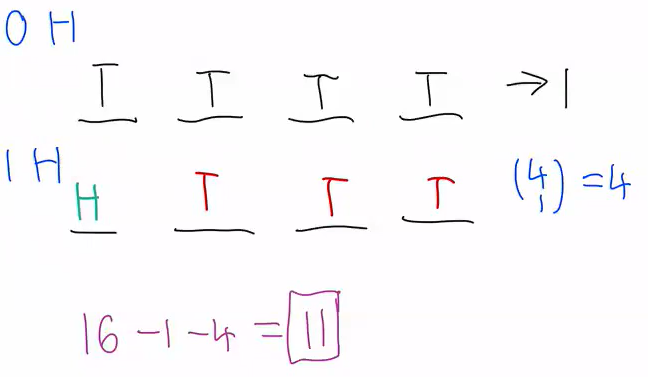 0 H
T T T T → 1
1 H
H T T T (4 1) = 4
16 - 1 - 4 = 11